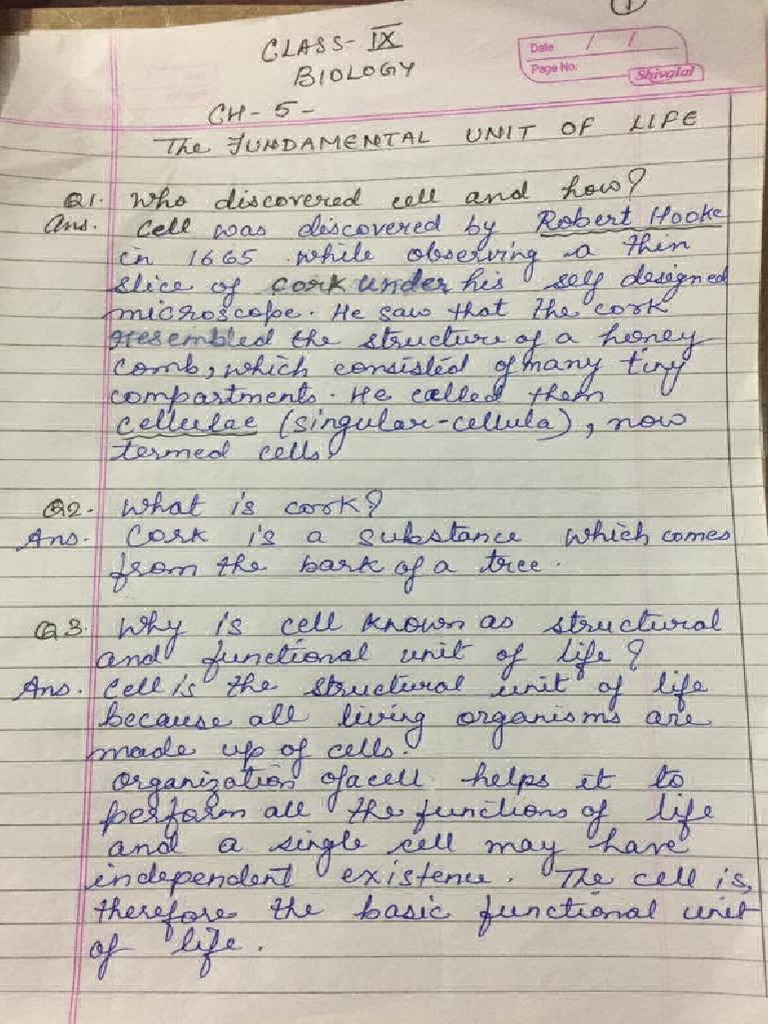 1
CLASS- IX
BIOLOGY
Date / /
Page No.
Shivalal
CH - 5 -
The FUNDAMENTAL UNIT OF LIFE
Q1. Who discovered cell and how?
Ans. Cell was discovered by Robert Hooke
in 1665 while observing a thin
slice of cork under his self designed
microscope. He saw that the cork
resembled the structure of a honey
comb, which consisted of many tiny
compartments. He called them
cellulae (singular-cellula), now
termed cells.
Q2. What is cork?
Ans. Cork is a substance which comes
from the bark of a tree.
Q3. Why is cell known as structural
and functional unit of life?
Ans. Cell is the structural unit of life
because all living organisms are
made up of cells.
Organization of a cell helps it to
perform all the functions of life
and a single cell may have
independent existence. The cell is,
therefore the basic functional unit
of life.